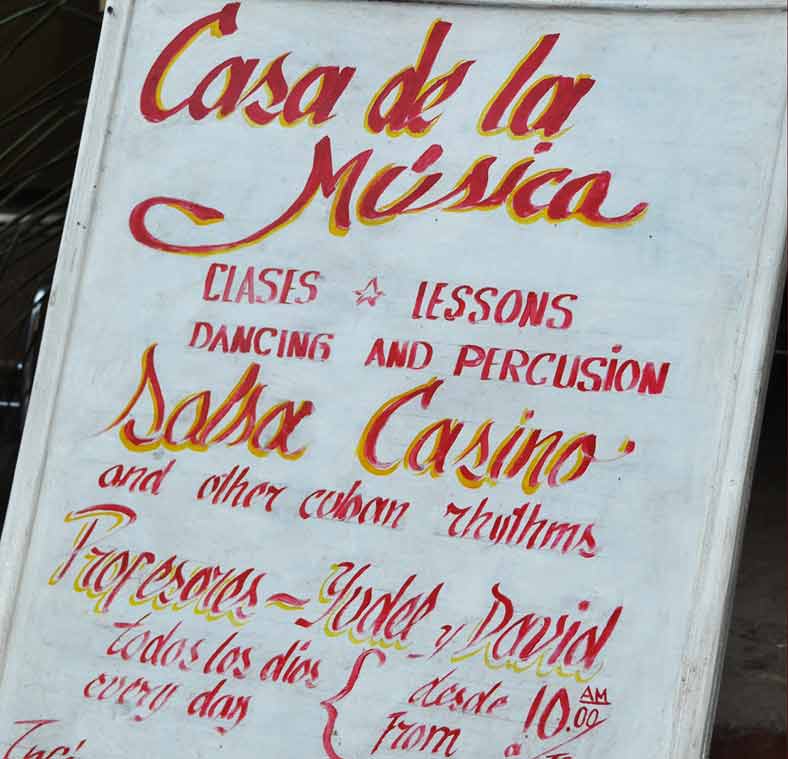 Casa de la
Música
CLASES ☆ LESSONS
DANCING AND PERCUSION
Salsa Casino
and other cuban rhythms
Profesores - Yudel y David
todos los dias desde 10.00 AM
every day From a